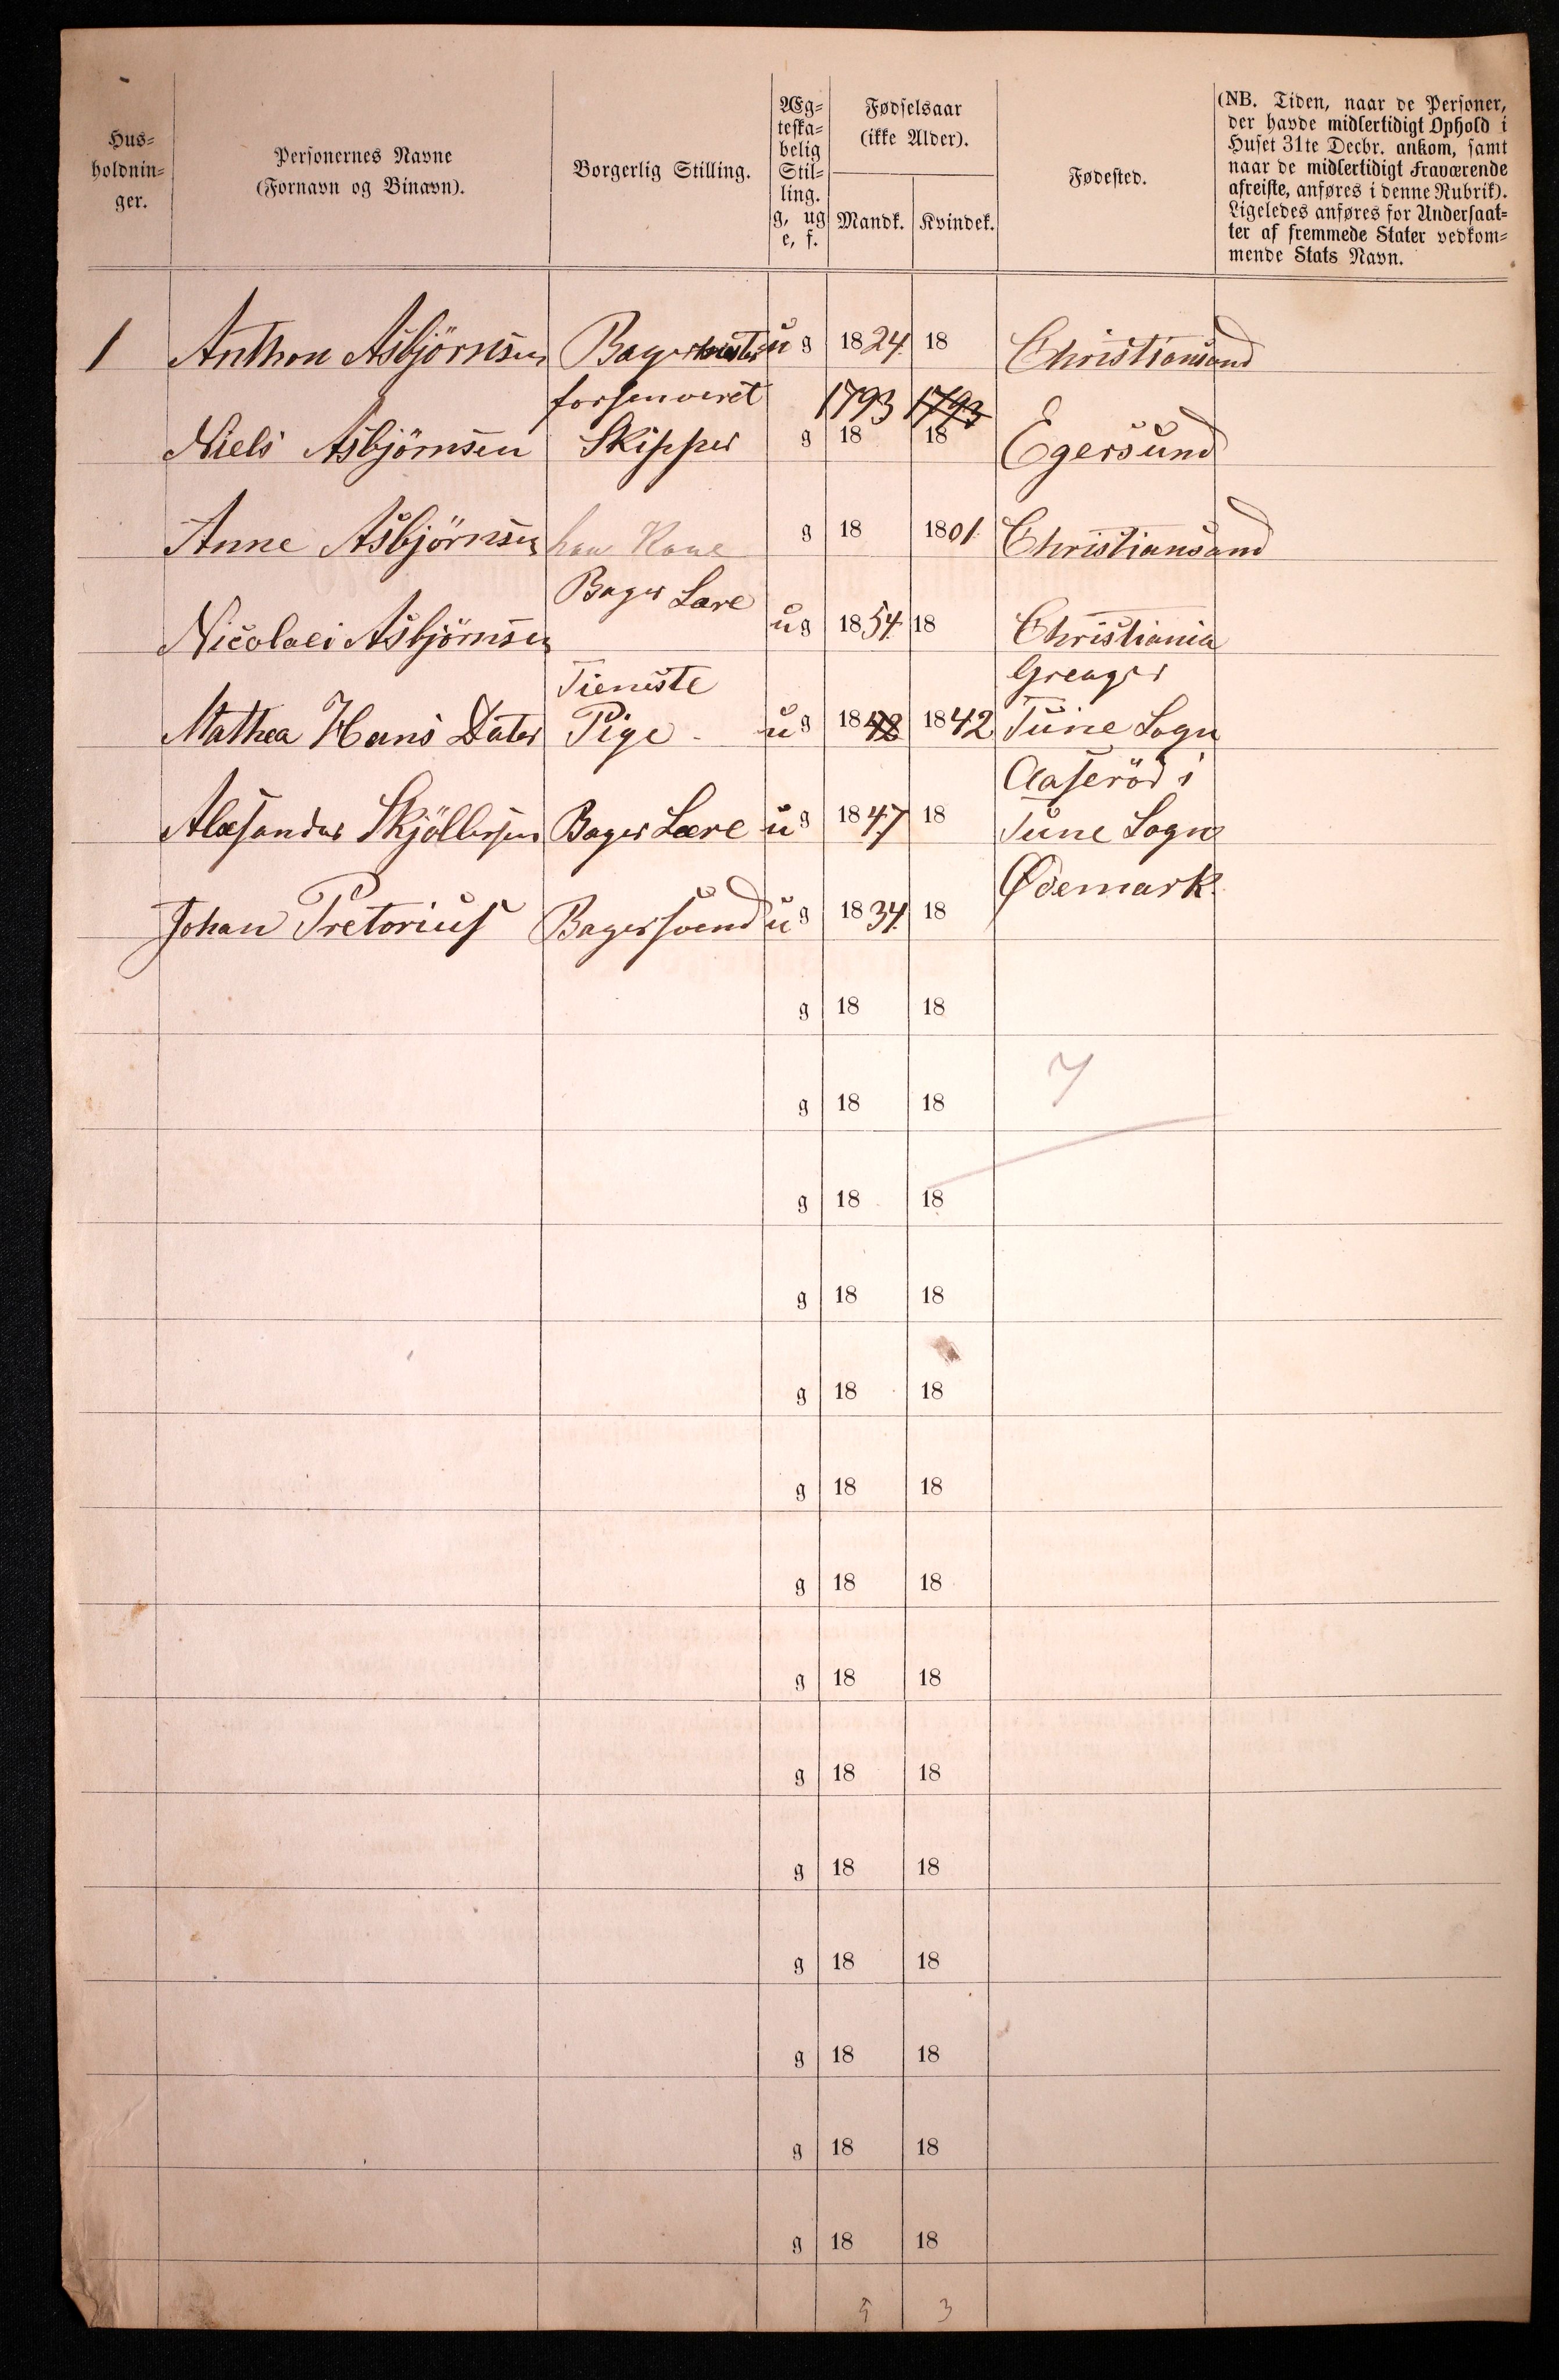 Hus-
holdnin-
ger.
Personernes Navne
(Fornavn og Binavn).
Borgerlig Stilling.
Æg-
teska-
belig
Stil-
ling.
g, ug
e, f.
Fødselsaar
(ikke Alder).
Mandk. Kvindek.
Fødested.
(NB. Tiden, naar de Personer,
der havde midlertidigt Ophold i
Huset 31te Decbr. ankom, samt
naar de midlertidigt Fraværende
afreiste, anføres i denne Rubrik).
Ligeledes anføres for Undersaat-
ter af fremmede Stater vedkom-
mende Stats Navn.
1 Anthon Asbjörnsen Bagermester ug 1824 18 Christiansand
forhenveret 1793 1793
Niels Asbjörnsen Skipper g 18 18 Egersund
Anne Asbjörnsen hans Kone g 18 1801 Christiansand
Bager Lære
Nicolaei Asbjörnsen ug 1854 18 Christiania
Tieneste Greager
Mathea Hans Dater Pige ug 1842 1842 Tune Sogn
Aaseröd i
Alexander Skjöllersen Bager Lære ug 1847 18 Tune Sogn
Ødemark
Johan Pretorius Bagersvend ug 1834 18
g 18 18
7
g 18 18
g 18 18
g 18 18
g 18 18
g 18 18
g 18 18
g 18 18
g 18 18
g 18 18
g 18 18
g 18 18
g 18 18
g 18 18
5 3